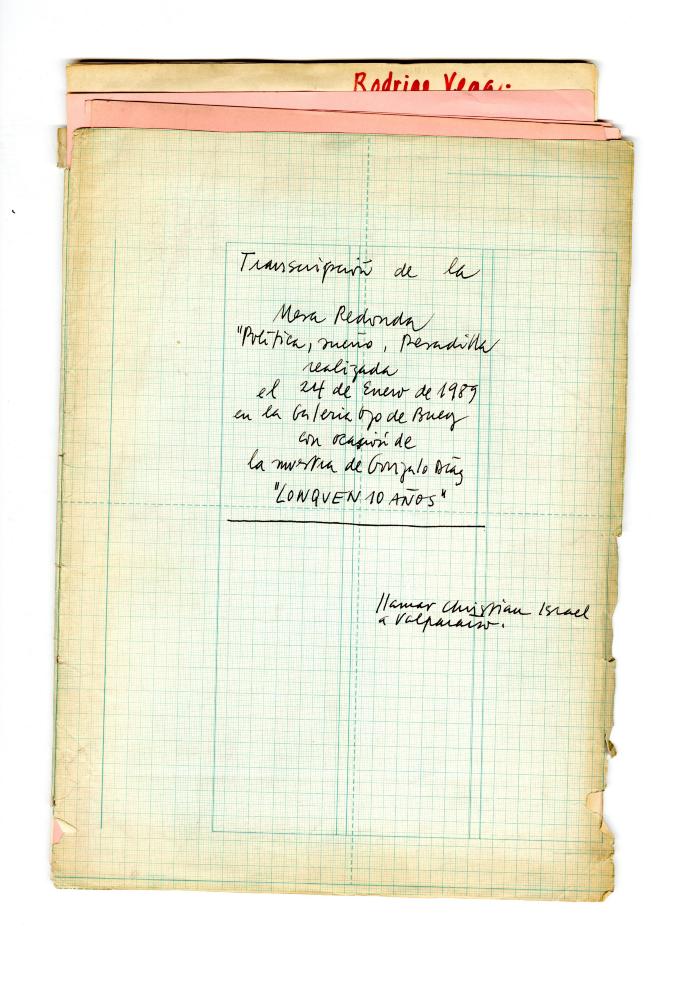 Rodrigo Vega.
Transcripción de la
Mesa Redonda
"Política, sueño, Pesadilla
realizada
el 24 de Enero de 1989
en la Galeria Ojo de Buey
con ocasión de
la muestra de Gonzalo Díaz
"LONQUEN 10 AÑOS"
llamar Christian Israel
a Valparaiso.